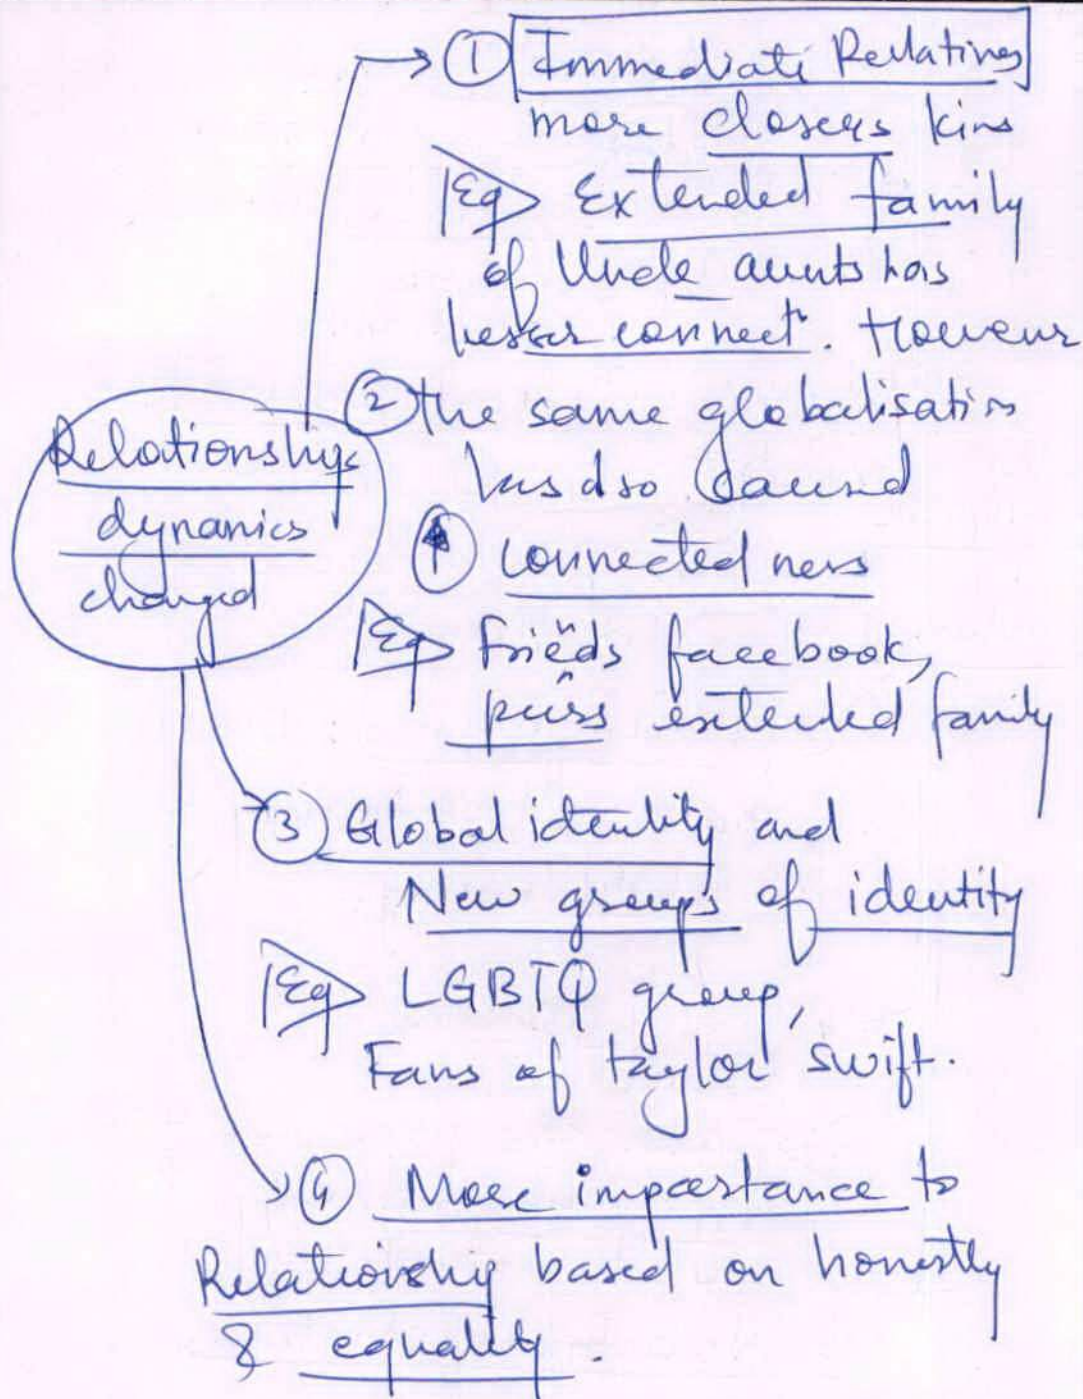 ① Immediate Relatives
more closers kins
Eg Extended family
of Uncle aunts has
lesser connect. However
② the same globalisation
has also caused
↑ connectedness
Eg Friends facebook,
peers extended family
Relationships
dynamics
changed
③ Global identity and
New groups of identity
Eg LGBTQ group,
Fans of taylor swift.
④ More importance to
Relationship based on honestly
& equality.